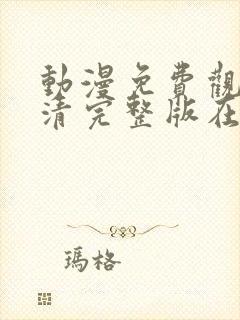 動漫免費觀
清完整版在
瑪格